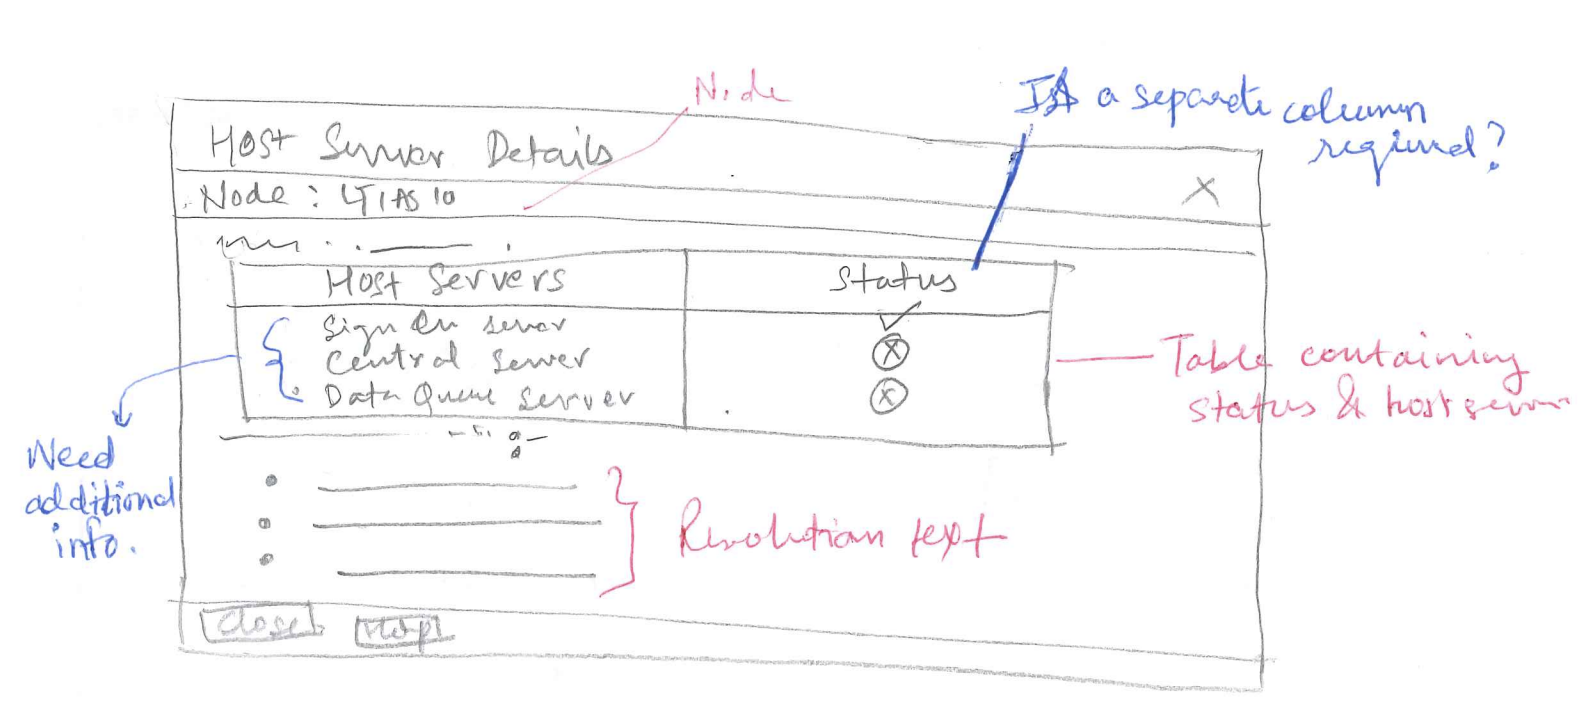 Node
Is a separate column
required?
Host Server Details
Node : LTIAS10
X
Host Servers
Status
Sign On server
Central Server
Data Queue Server
Table containing
status & host server
Need
additional
info.
Resolution text
Close
Help